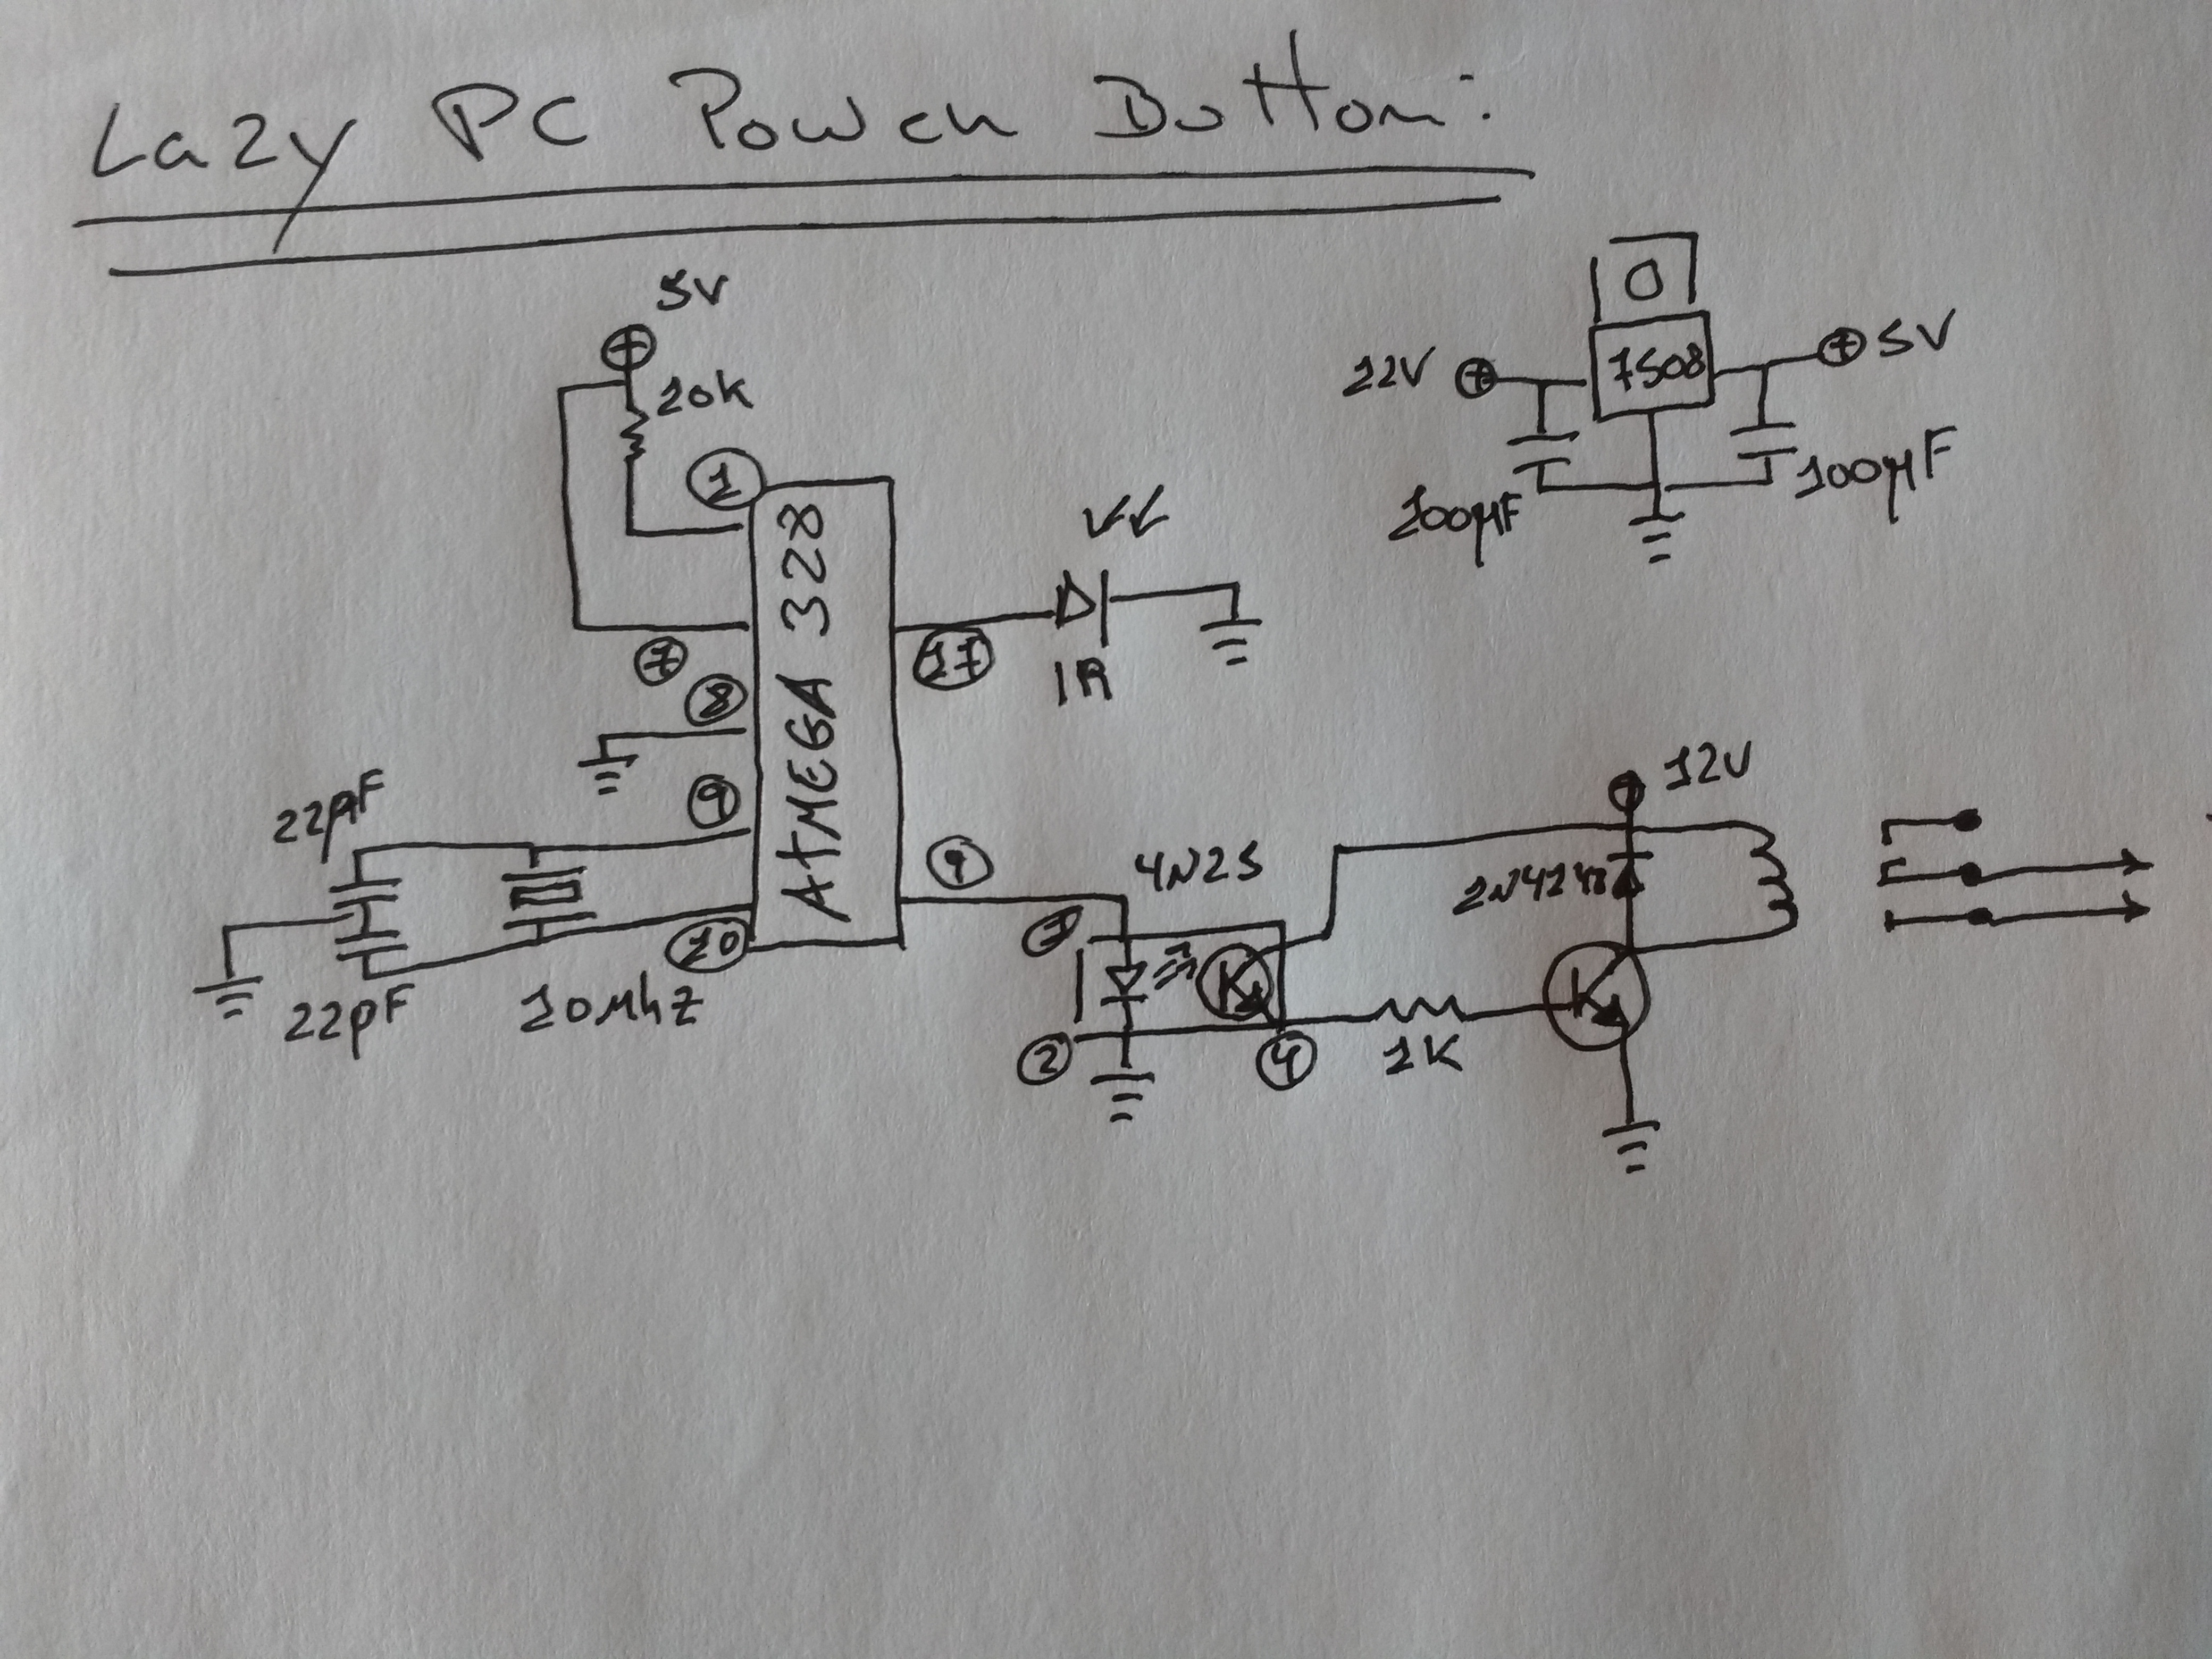 Lazy PC Power Bottom:
5V
10K
1
7
8
9
10
ATMEGA 328
17
IR
9
22pF
22pF
10Mhz
12V
7508
5V
100µF
100µF
4N25
1
2
4
1K
12V
1N4148